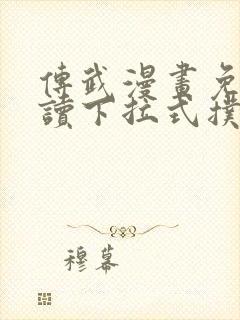 傳武漫畫免
讀下拉式撲
穆幕